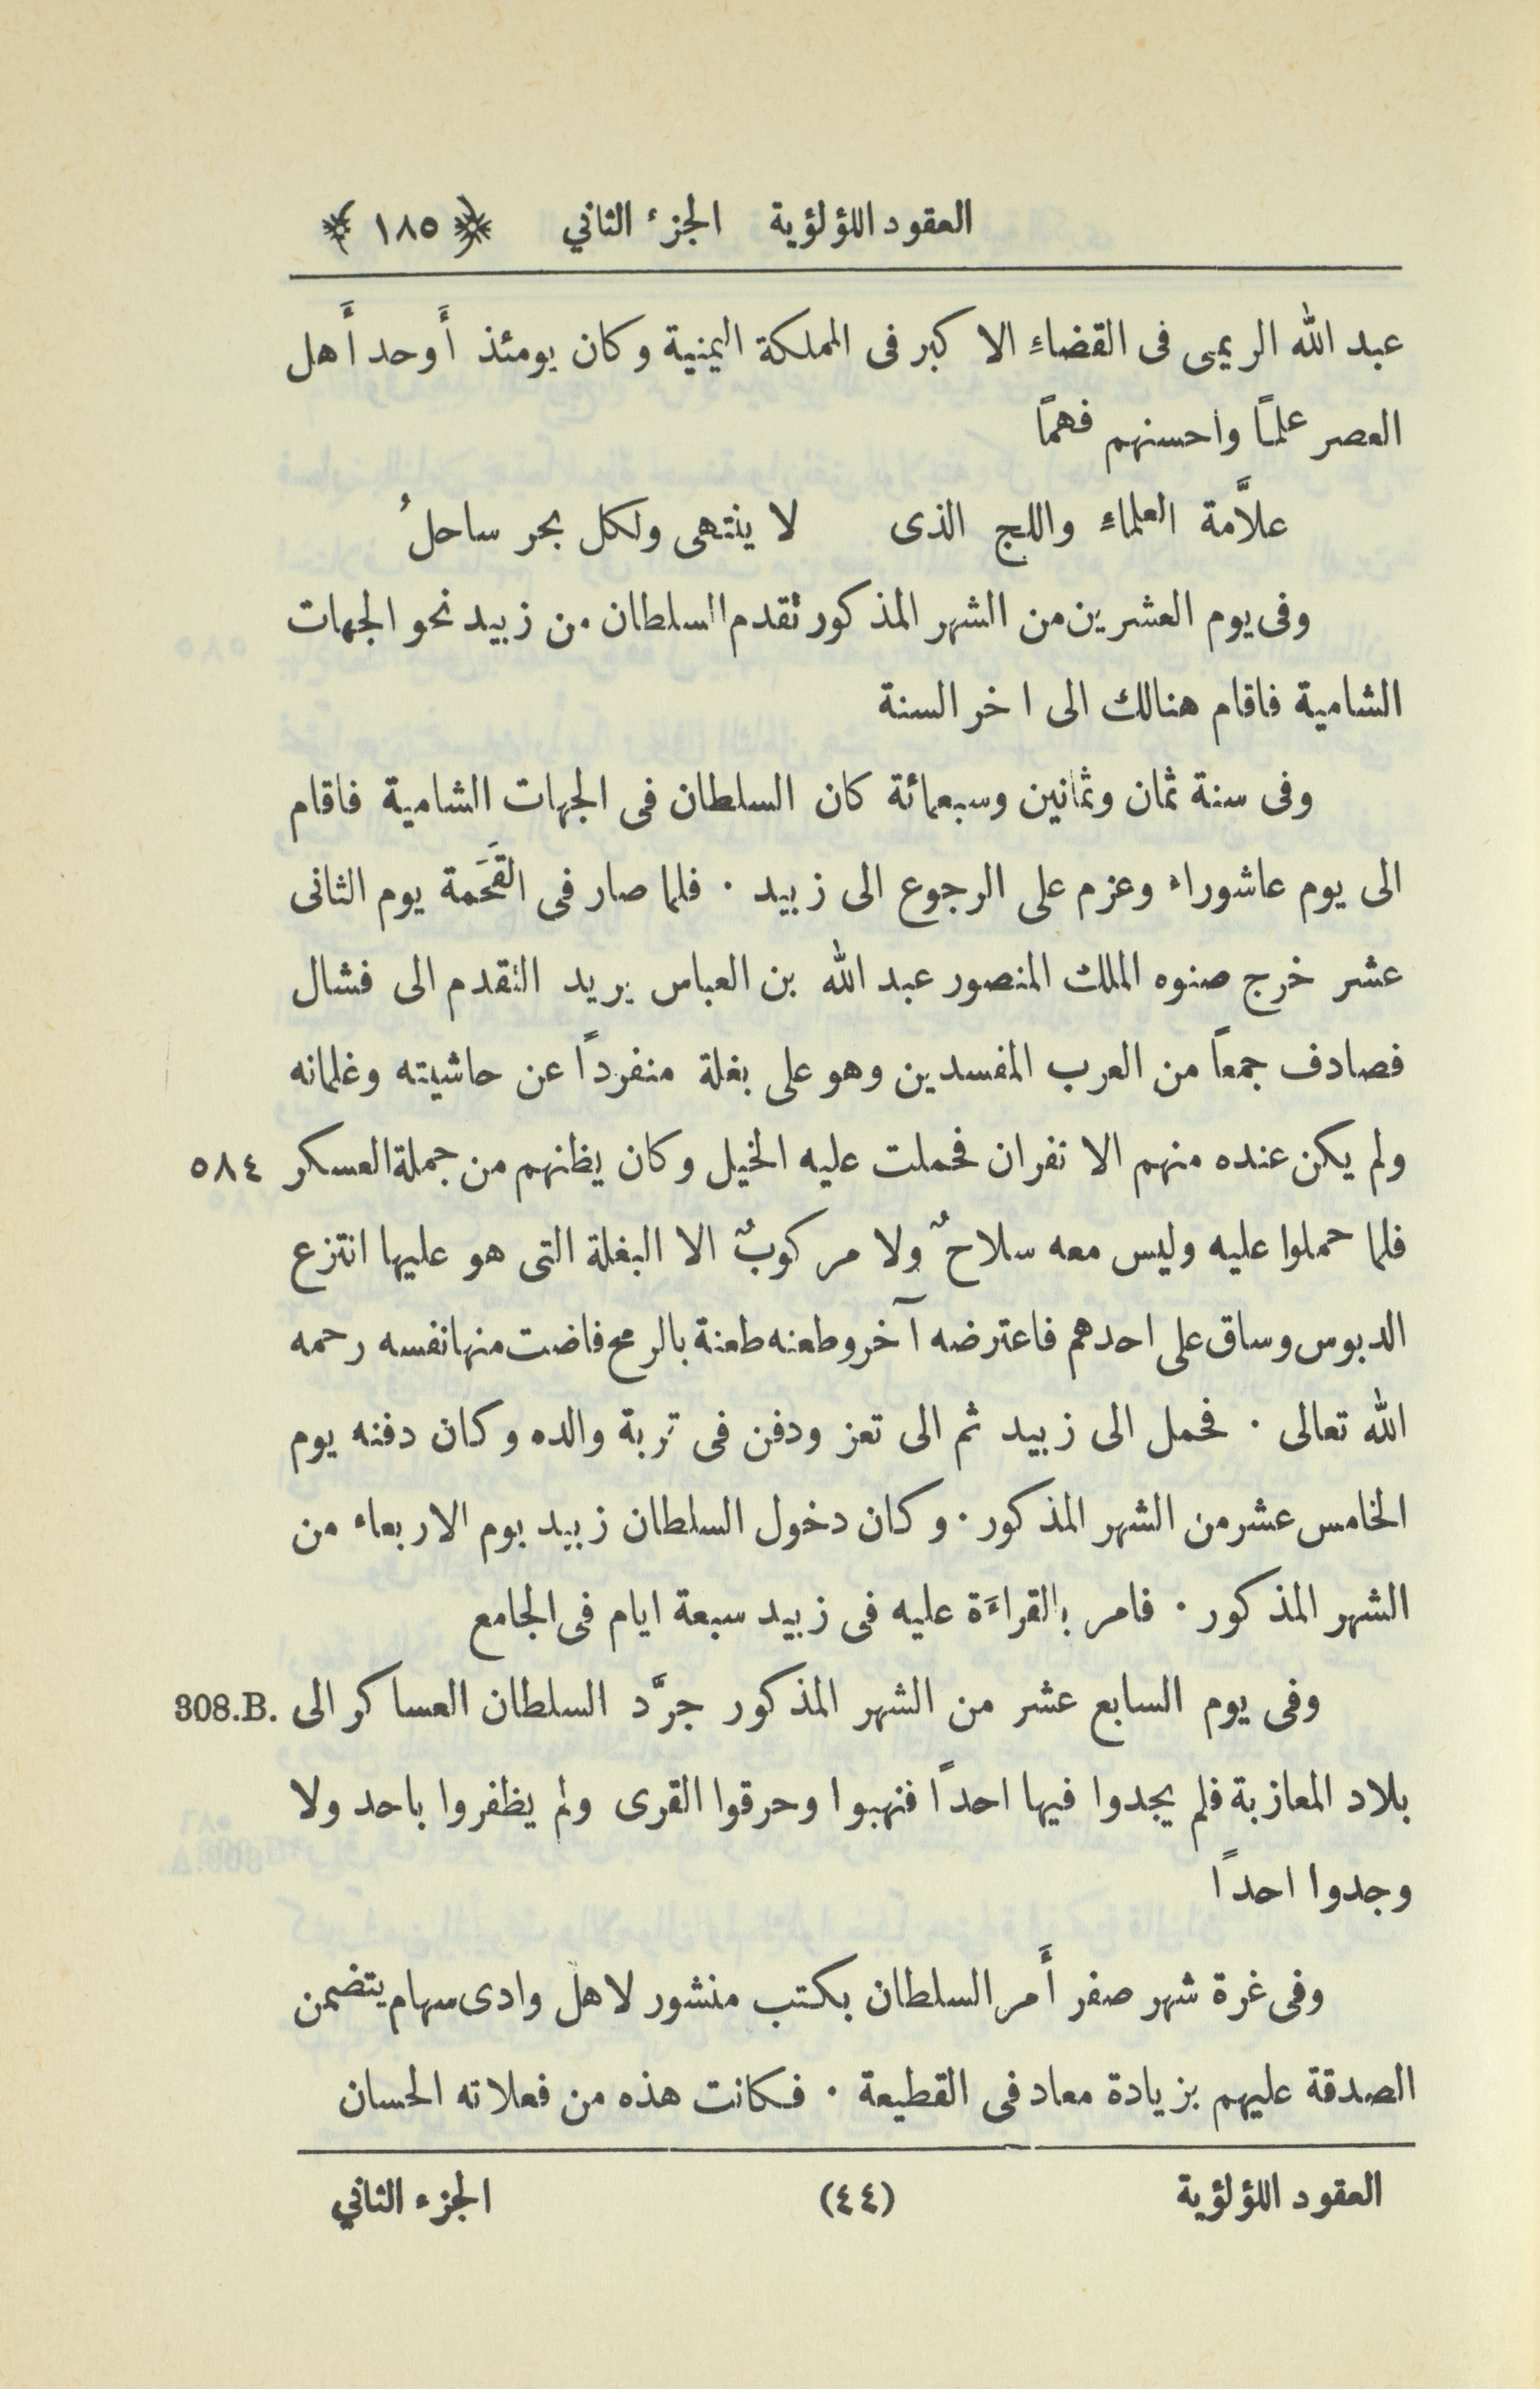 العقود اللؤلؤية الجزء الثاني ﴿ ١٨٥ ﴾
عبد الله الريمى فى القضاءِ الاكبر فى المملكة اليمنية وكان يومئذ أَوحد أَهل
العصر علمًا واحسنهم فهمًا
علاَّمة العلماءِ واللج الذى لا ينتهى ولكل بحر ساحلُ
وفى يوم العشرين من الشهر المذكور ثقدم السلطان من زبيد نحو الجهات
الشامية فاقام هنالك الى اخر السنة
وفى سنة ثمان وثمانين وسبعمائة كان السلطان فى الجهات الشامية فاقام
الى يوم عاشوراء وعزم على الرجوع الى زبيد ٠ فلما صار فى القَحَمة يوم الثانى
عشر خرج صنوه الملك المنصور عبد الله بن العباس يريد التقدم الى فشال
فصادف جمعاً من العرب المفسدين وهو على بغلة منفردًا عن حاشيته وغلمانه
ولم يكن عنده منهم الا نفران فحملت عليه الخيل وكان يظنهم من جملة العسكر ٥٨٤
فلما حملوا عليه وليس معه سلاحٌ ولا مركوبٌ الا البغلة التى هو عليها انتزع
الدبوس وساق على احدهم فاعترضه آخر وطعنه طعنة بالرمح فاضت منها نفسه رحمه
الله تعالى ٠ فحمل الى زبيد ثم الى تعز ودفن فى تربة والده وكان دفنه يوم
الخامس عشر من الشهر المذكور ٠ وكان دخول السلطان زبيد يوم الاربعاء من
الشهر المذكور ٠ فامر بالقراءَة عليه فى زبيد سبعة ايام فى الجامع
وفى يوم السابع عشر من الشهر المذكور جرَّد السلطان العساكر الى 308.B.
بلاد المعازبة فلم يجدوا فيها احدًا فنهبوا وحرقوا القرى ولم يظفروا باحد ولا
وجدوا احدًا
وفى غرة شهر صفر أَمر السلطان بكتب منشور لاهل وادى سهام يتضمن
الصدقة عليهم بزيادة معاد فى القطيعة ٠ فكانت هذه من فعلاته الحسان
العقود اللؤلؤية (٤٤) الجزء الثاني